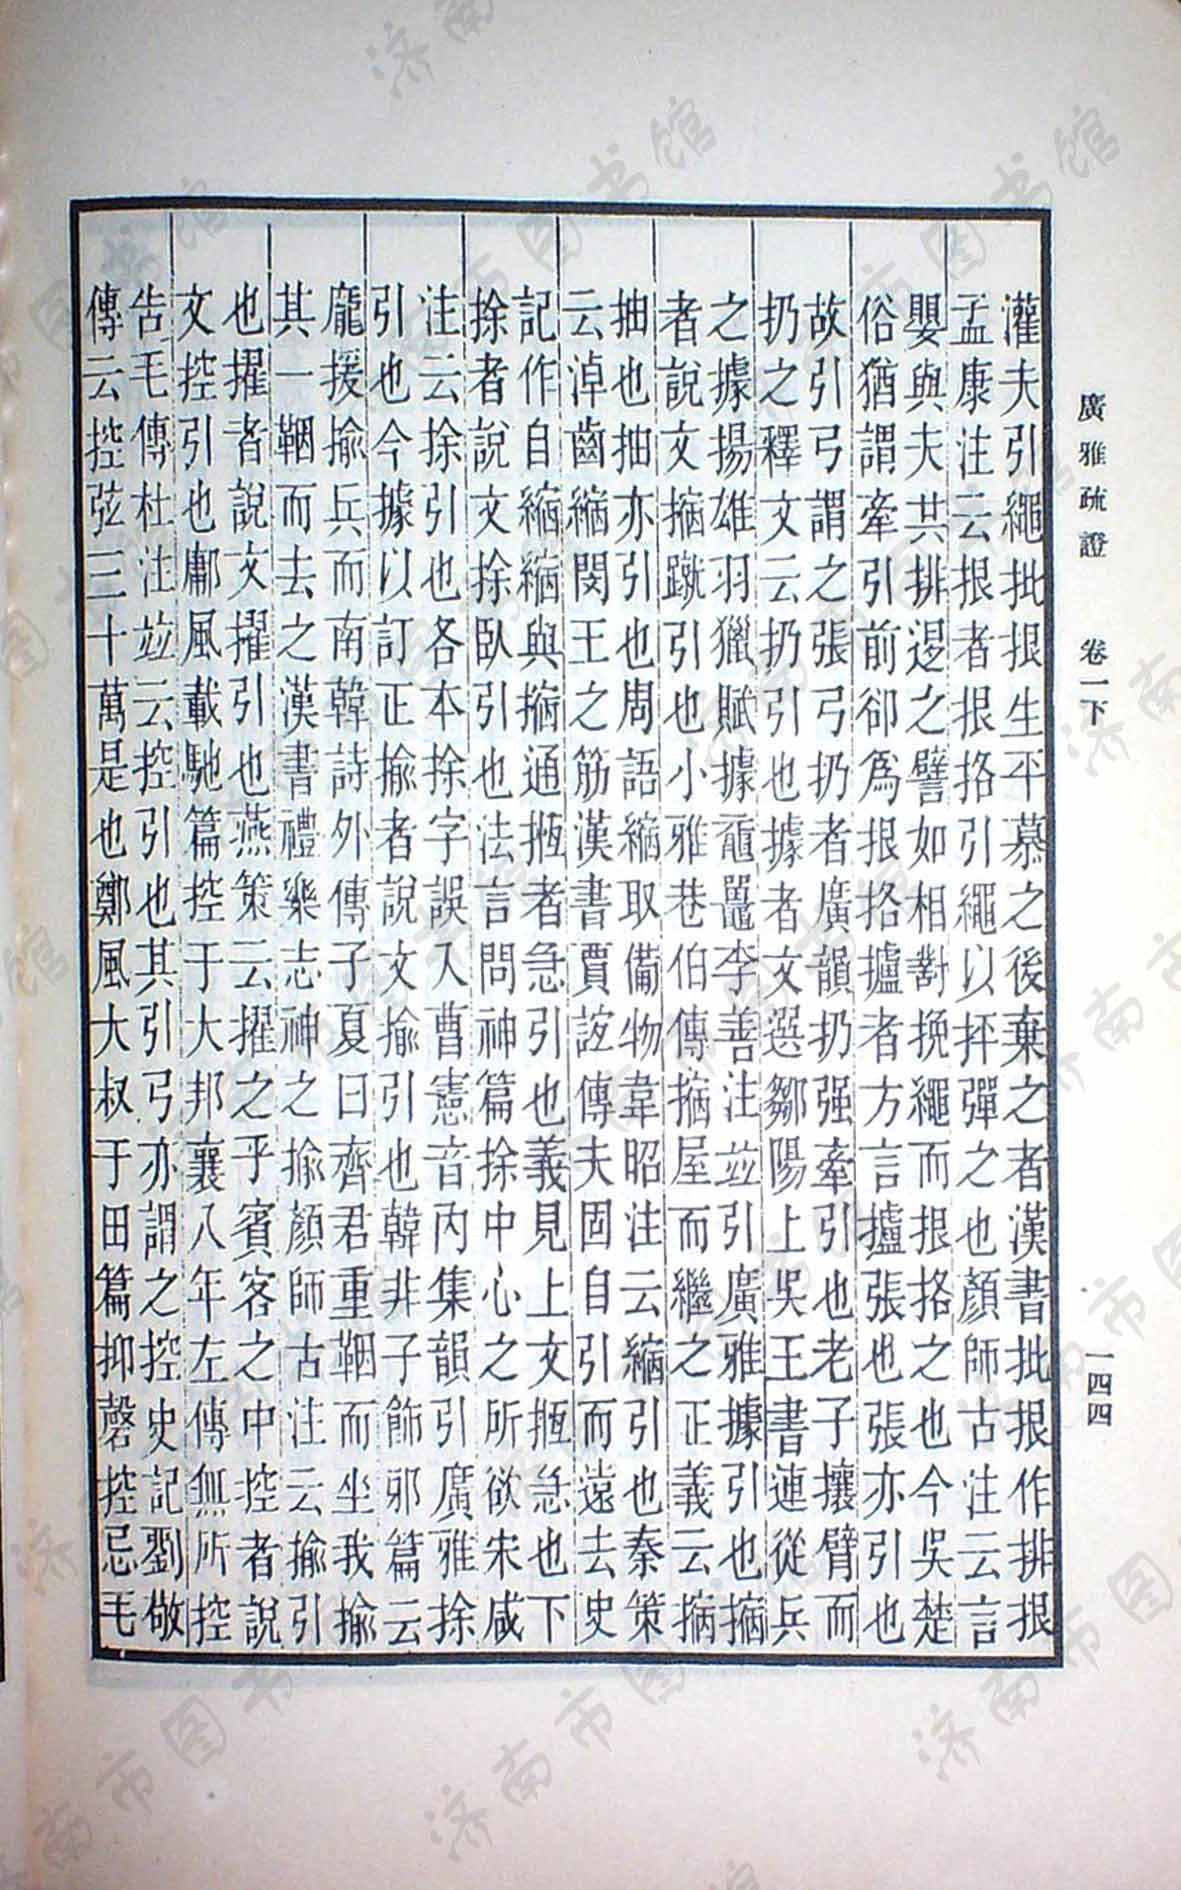 廣雅疏證 卷一下 一四四
灌夫引繩批拫生平慕之後棄之者漢書批拫作排拫
孟康注云拫者拫挌引繩以抨彈之也顏師古注云言
嬰與夫共排退之譬如相對挽繩而拫挌之也今吳楚
俗猶謂牽引前卻爲拫挌攎者方言攎張也張亦引也
故引弓謂之張弓扔者廣韻扔强牽引也老子攘臂而
扔之釋文云扔引也據者文選鄒陽上吳王書連從兵
之據揚雄羽獵賦據黿鼉李善注竝引廣雅據引也摍
者說文摍蹴引也小雅巷伯傳摍屋而繼之正義云摍
抽也抽亦引也周語縮取備物韋昭注云縮引也秦策
云淖齒縮閔王之筋漢書賈誼傳夫固自引而遠去史
記作自縮縮與摍通揯者急引也義見上文揯急也下
捈者說文捈臥引也法言問神篇捈中心之所欲宋咸
注云捈引也各本捈字誤入曹憲音內集韻引廣雅捈
引也今據以訂正揄者說文揄引也韓非子飾邪篇云
龐援揄兵而南韓詩外傳子夏曰齊君重鞇而坐我揄
其一鞇而去之漢書禮樂志神之揄顏師古注云揄引
也擢者說文擢引也燕策云擢之乎賓客之中控者說
文控引也鄘風載馳篇控于大邦襄八年左傳無所控
告毛傳杜注竝云控引也其引弓亦謂之控史記劉敬
傳云控弦三十萬是也鄭風大叔于田篇抑磬控忌毛
济南市图书馆